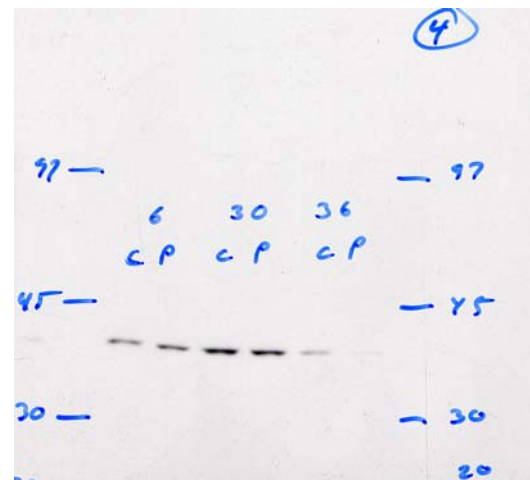 4
97 — — 97
6 30 36
C P C P C P
45 — — 45
30 — — 30
20